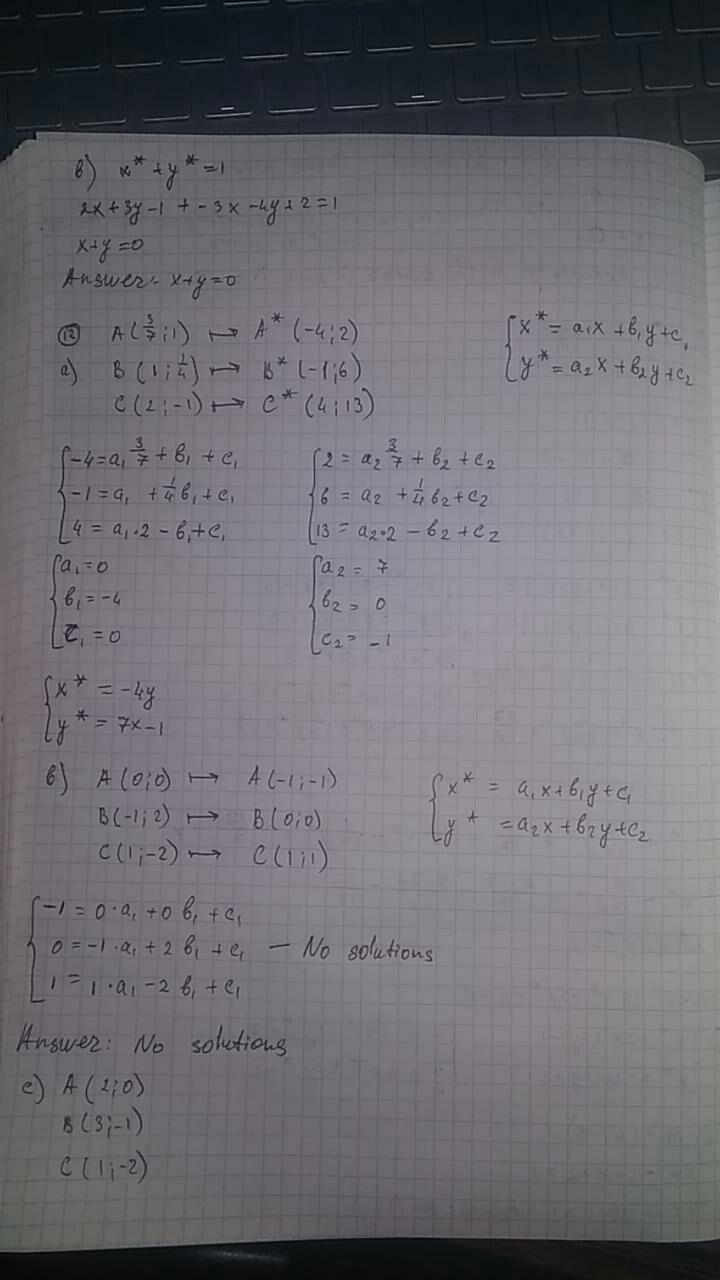 b) x* + y* = 1
2x+3y-1 + -3x-4y+2=1
x+y=0
Answer: x+y=0
⑫ A(3/7;1) ↦ A*(-4;2)
{x* = a₁x + b₁y + c₁
a) B(1;1/4) ↦ B*(-1;6)
y* = a₂x + b₂y + c₂
C(2;-1) ↦ C*(4;13)
{-4 = a₁ 3/7 + b₁ + c₁
-1 = a₁ + 1/4 b₁ + c₁
4 = a₁·2 - b₁ + c₁
{2 = a₂ 3/7 + b₂ + c₂
6 = a₂ + 1/4 b₂ + c₂
13 = a₂·2 - b₂ + c₂
{a₁ = 0
b₁ = -4
c₁ = 0
{a₂ = 7
b₂ = 0
c₂ = -1
{x* = -4y
y* = 7x-1
b) A(0;0) ↦ A(-1;-1)
B(-1;2) ↦ B(0;0)
C(1;-2) ↦ C(1;1)
{x* = a₁x + b₁y + c₁
y* = a₂x + b₂y + c₂
{-1 = 0·a₁ + 0 b₁ + c₁
0 = -1·a₁ + 2 b₁ + c₁ — No solutions
1 = 1·a₁ - 2 b₁ + c₁
Answer: No solutions
c) A(2;0)
B(3;-1)
C(1;-2)